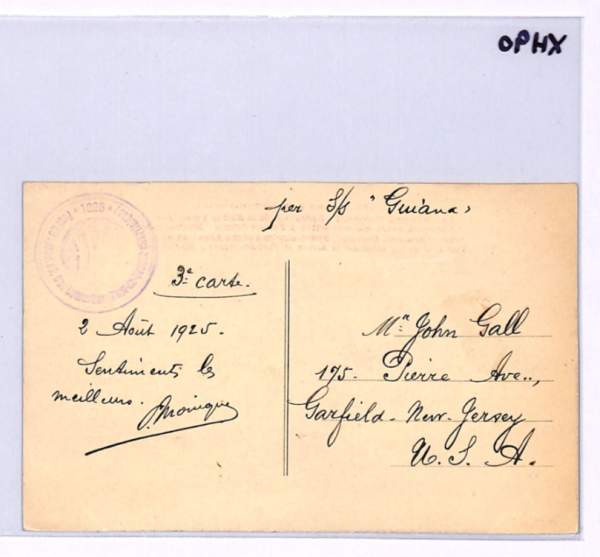 OPHX
per S/s "Guiana"
1925
3e carte.
2 Août 1925.
Sentiments les
meilleurs.
Mr. John Gall
175. Pierre Ave.,
Garfield. New-Jersey
U. S. A.